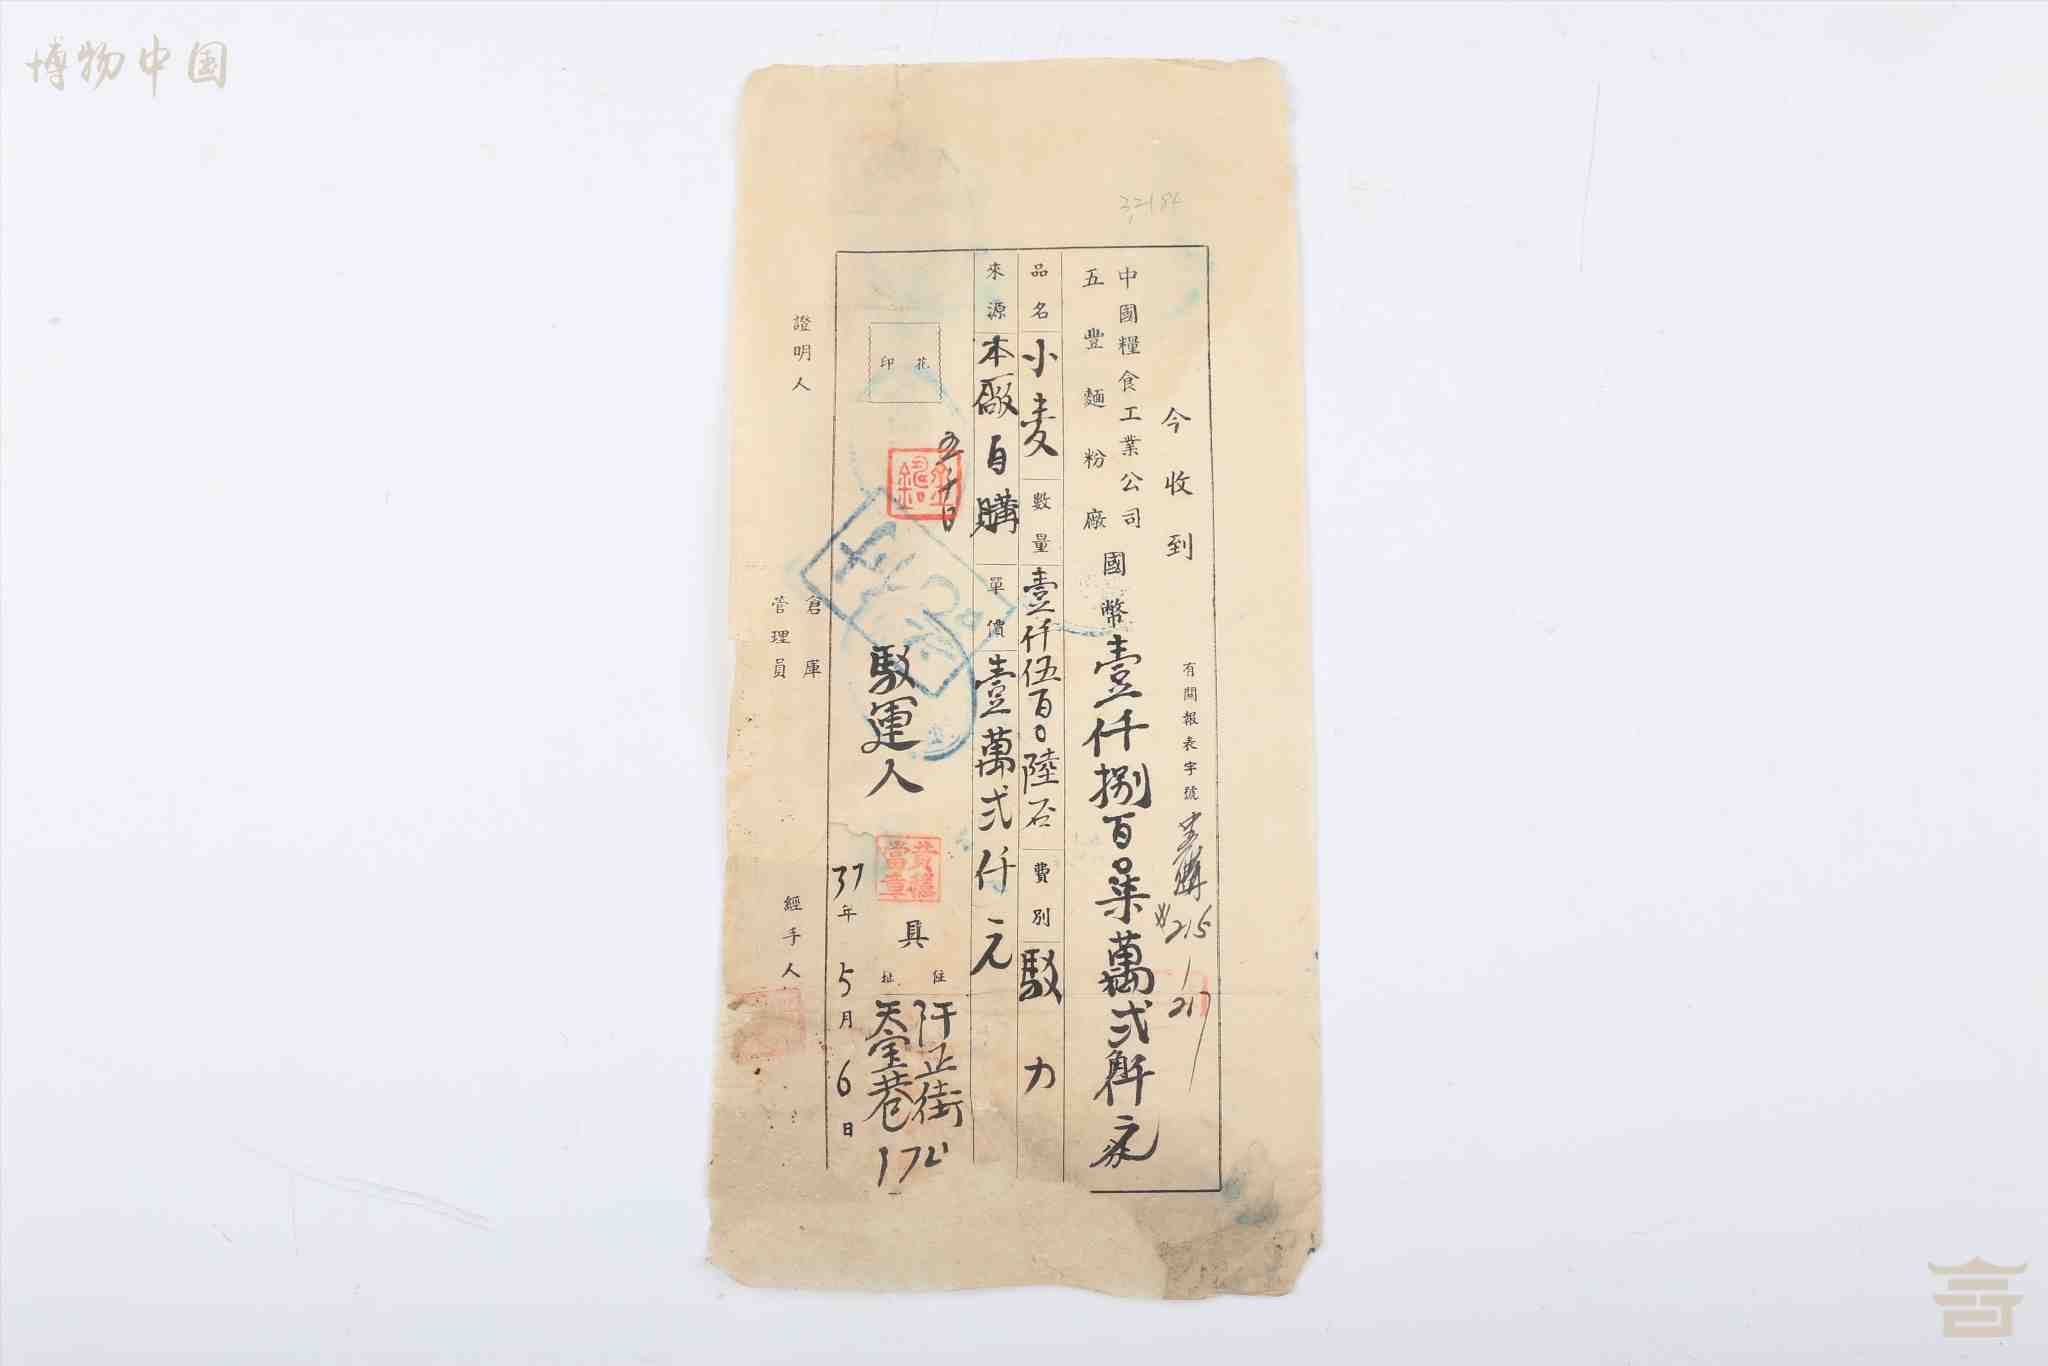 博物中国
32184
今收到
有關報表字號
215
217
中國糧食工業公司
五豐麵粉廠
國幣壹仟捌百柒萬弍仟元
品名 小麦 數量 壹仟伍百〇陸石 費別 駁力
來源 本廠自購 單價 壹萬弍仟元
印花
駁運人
具
住址
正街
天宝巷
37年5月6日
證明人
倉庫
管理員
經手人